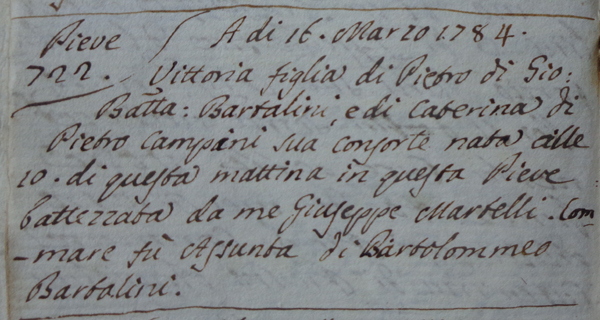 Pieve A di 16. Marzo 1784.
722. Vittoria figlia di Pietro di Gio:
Batta: Bartalini, e di Caterina di
Pietro Campani sua consorte nata alle
10. di questa mattina in questa Pieve
battezzata da me Giuseppe Martelli. Com
-mare fù Assunta di Bartolommeo
Bartalini.